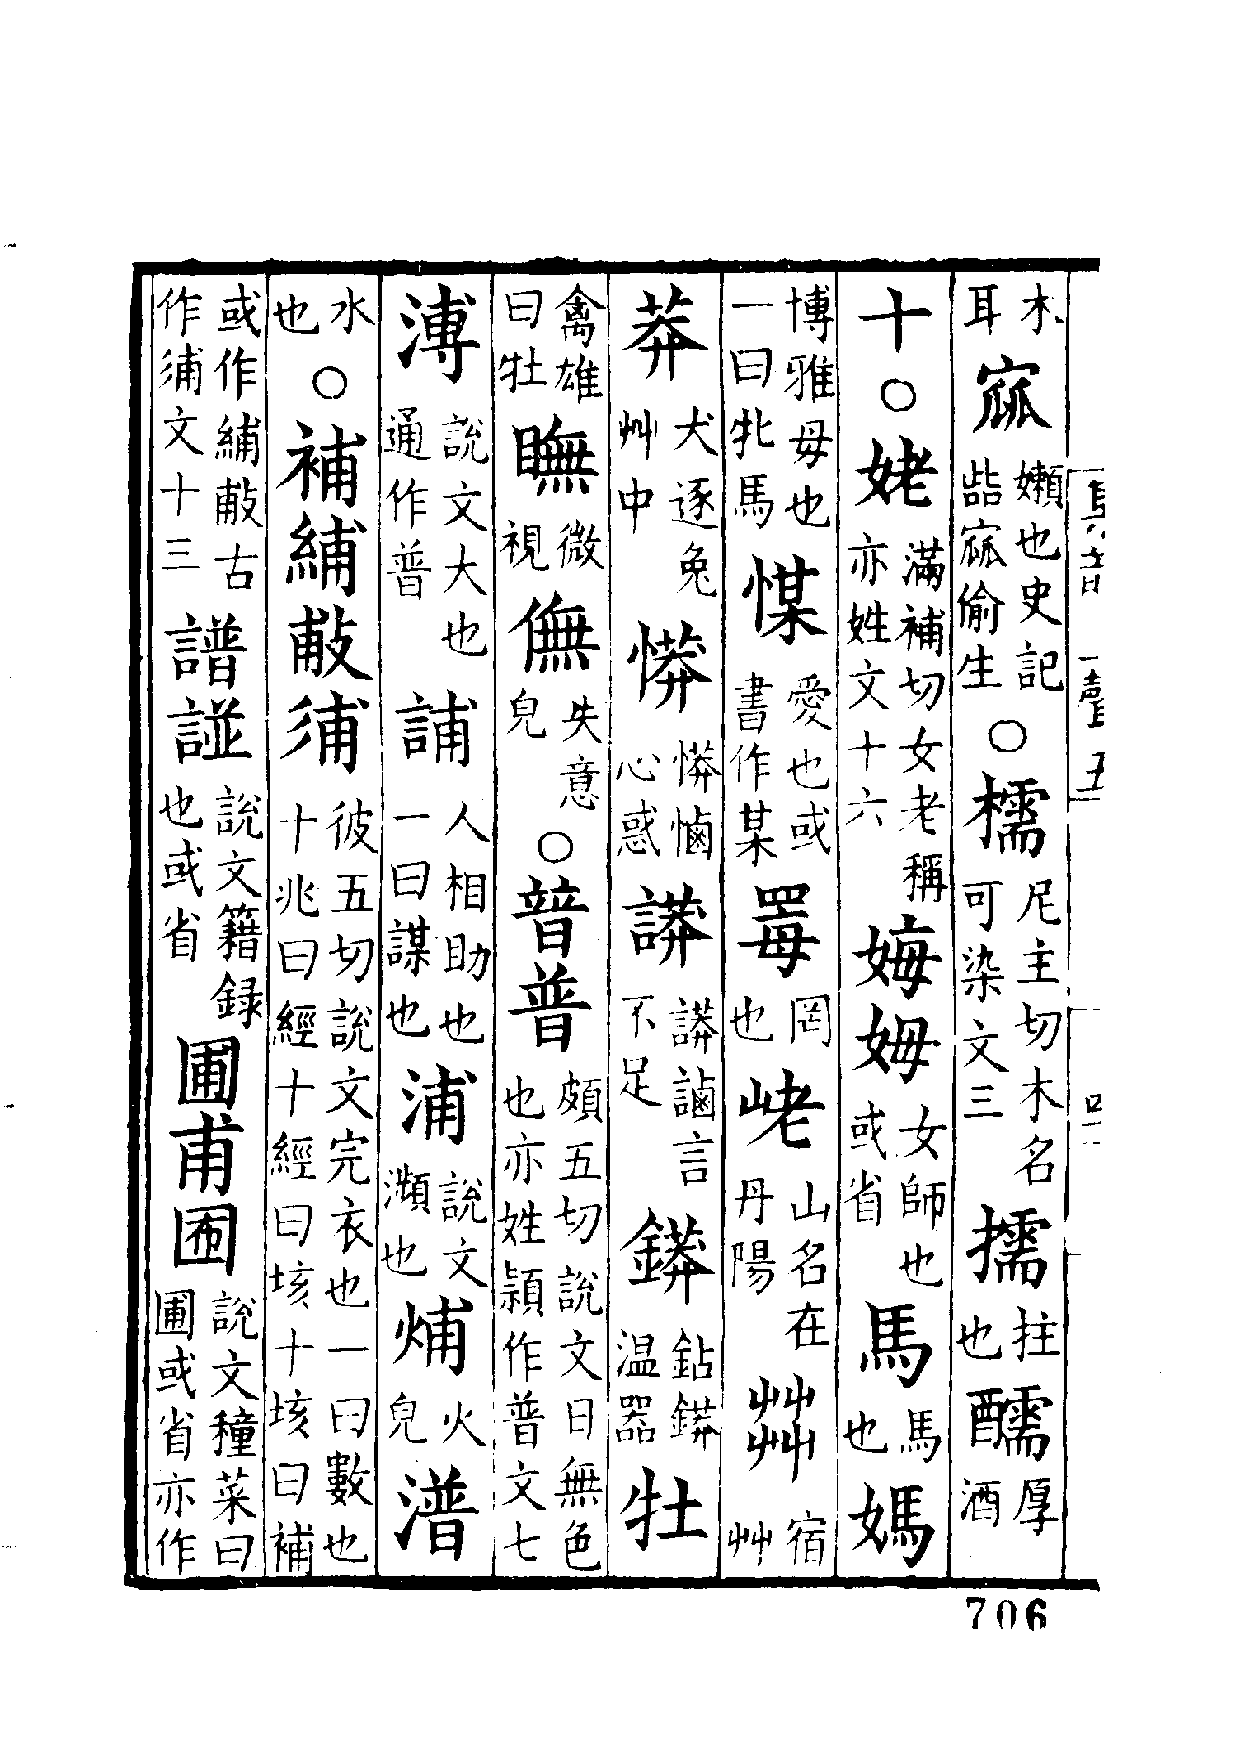 木耳㼌嬾也史記呰㼌偷生○檽尼主切木名可染文三擩拄也醹厚酒
十○姥滿補切女老稱亦姓文十六娒姆女師也或省馬馬也媽
博雅母也一曰牝馬惈愛也或書作某罞罔也峔山名在丹陽茻宿艸
莽犬逐兔艸中㦀㦀㥪心惑䜢䜢𧫢言不足鏻鈷鏻温器牡
禽雄曰牡瞴微視㒇失意皃○暜普頗五切說文日無色也亦姓潁作普文七
溥說文大也通作普誧人相助也一曰謀也浦說文瀕也烳火皃潽
水也○補䋠㪔𢔗彼五切說文完衣也一曰數也十兆曰經十經曰垓十垓曰補
或作䋠㪔古作𢔗文十三譜諩說文籍録也或省圃甫囿說文穜菜曰圃或省亦作
706